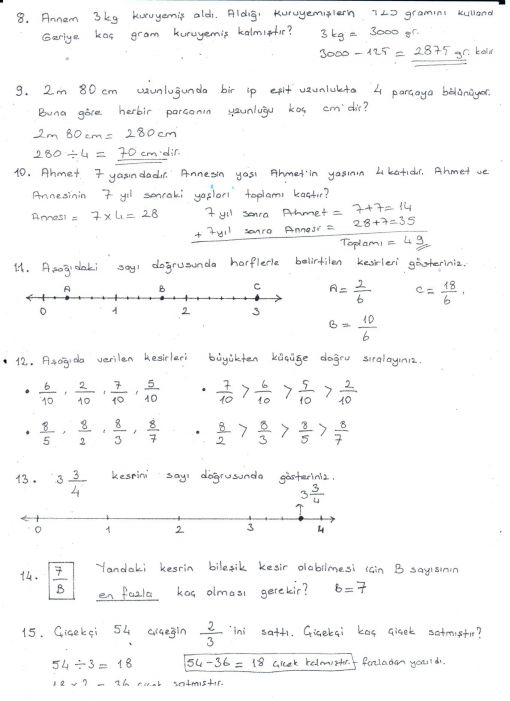 8. Annem 3 kg kuruyemiş aldı. Aldığı kuruyemişlerin 125 gramını kulland
Geriye kaç gram kuruyemiş kalmıştır? 3 kg = 3000 gr.
3000 - 125 = 2875 gr. kalır
9. 2m 80 cm uzunluğunda bir ip eşit uzunlukta 4 parçaya bölünüyor.
Buna göre herbir parçanın uzunluğu kaç cm'dir?
2m 80 cm = 280 cm
280 ÷ 4 = 70 cm'dir.
10. Ahmet 7 yaşındadır. Annesin yaşı Ahmet'in yaşının 4 katıdır. Ahmet ve
Annesinin 7 yıl sonraki yaşları toplamı kaçtır?
Annesi = 7 x 4 = 28 7 yıl sonra Ahmet = 7+7=14
+ 7 yıl sonra Annesi = 28+7=35
Toplamı = 49
11. Aşağıdaki sayı doğrusunda harflerle belirtilen kesirleri gösteriniz.
A B C A = 2/6 C = 18/6
0 1 2 3
B = 10/6
12. Aşağıda verilen kesirleri büyükten küçüğe doğru sıralayınız.
• 6/10, 2/10, 7/10, 5/10 • 7/10 > 6/10 > 5/10 > 2/10
• 8/5, 8/2, 8/3, 8/7 • 8/2 > 8/3 > 8/5 > 8/7
13. 3 3/4 kesrini sayı doğrusunda gösteriniz.
3 3/4
0 1 2 3 4
14. 7/B Yandaki kesrin bileşik kesir olabilmesi için B sayısının
en fazla kaç olması gerekir? B=7
15. Çiçekçi 54 çiçeğin 2/3 'ini sattı. Çiçekçi kaç çiçek satmıştır?
54 ÷ 3 = 18 54-36 = 18 çiçek kalmıştır. fazladan yazıldı.
18 x 2 = 36 çiçek satmıştır.